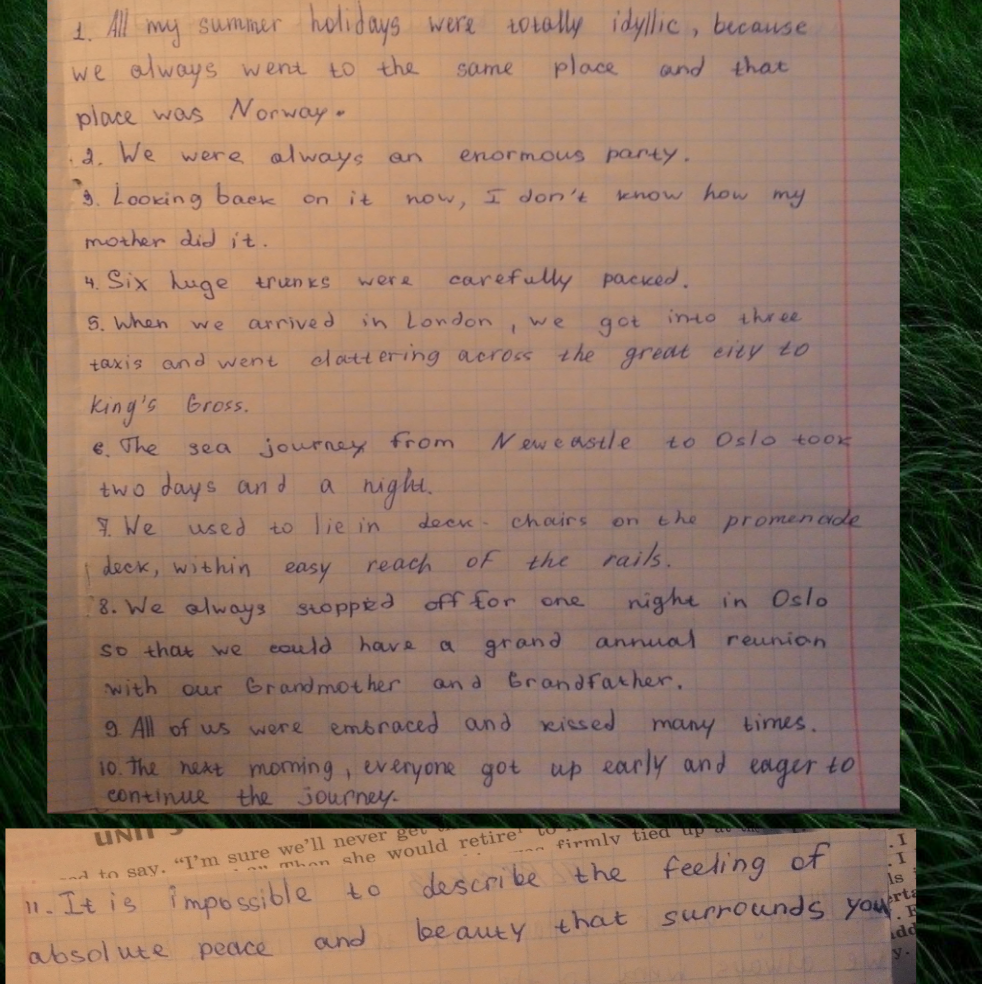 1. All my summer holidays were totally idyllic, because
we always went to the same place and that
place was Norway.
2. We were always an enormous party.
3. Looking back on it now, I don't know how my
mother did it.
4. Six huge trunks were carefully packed.
5. When we arrived in London, we got into three
taxis and went clattering across the great city to
King's Gross.
6. The sea journey from Newcastle to Oslo took
two days and a night.
7. We used to lie in deck-chairs on the promenade
deck, within easy reach of the rails.
8. We always stopped off for one night in Oslo
so that we could have a grand annual reunion
with our Grandmother and Grandfather.
9. All of us were embraced and kissed many times.
10. The next morning, everyone got up early and eager to
continue the journey.
UNIT
to say. "I'm sure we'll never get
she would retire
firmly tied up
11. It is impossible to describe the feeling of
absolute peace and beauty that surrounds you